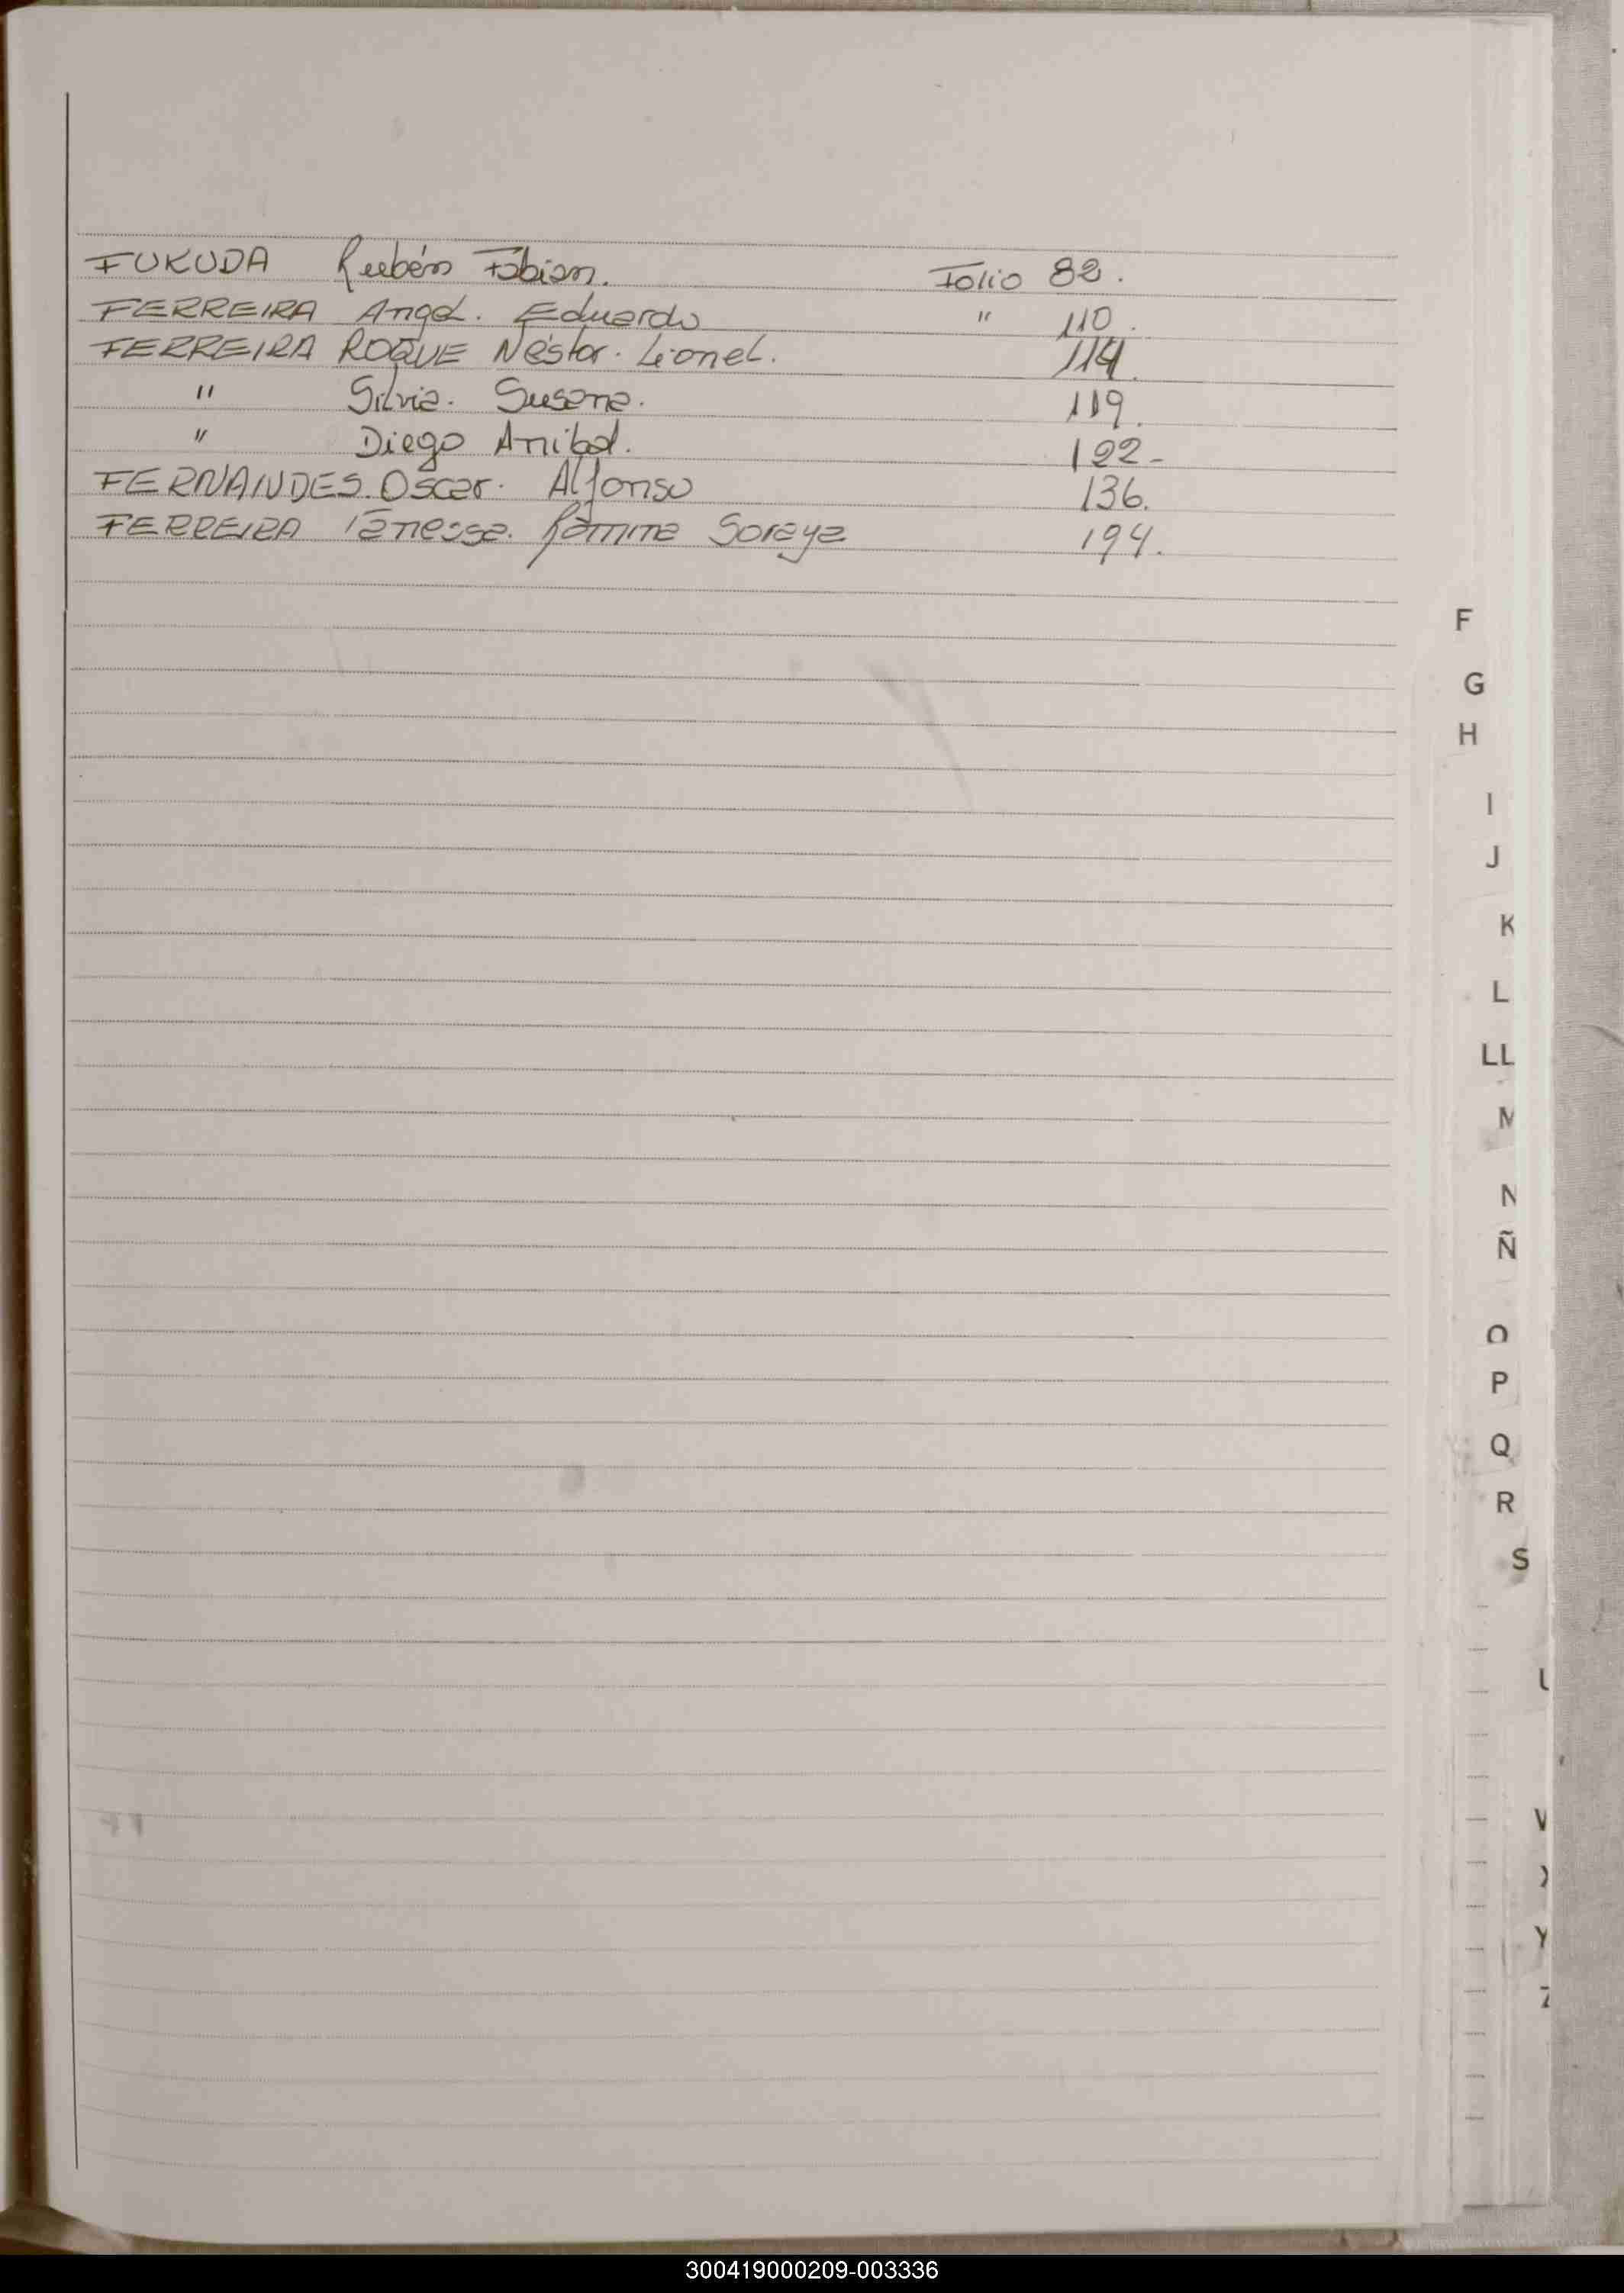 FUKUDA Rubén Fabian. Folio 82.
FERREIRA Angel. Eduardo " 110.
FERREIRA ROQUE Néstor. Lionel. 114.
" Silvia. Susana. 119.
" Diego Anibal. 122-
FERNANDES. Oscar. Alfonso 136.
FERREIRA Vanessa. Romina Soraya 194.
F
G
H
I
J
K
L
LL
M
N
Ñ
O
P
Q
R
S
U
V
X
Y
Z
300419000209-003336